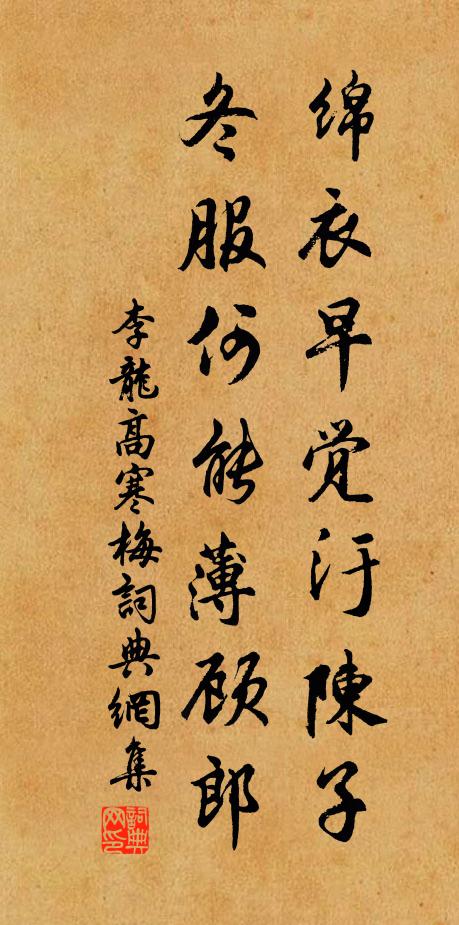 绵衣早觉汙陳子
冬服何能薄顾郎
李龍高寒梅詞典網集
詞典网印